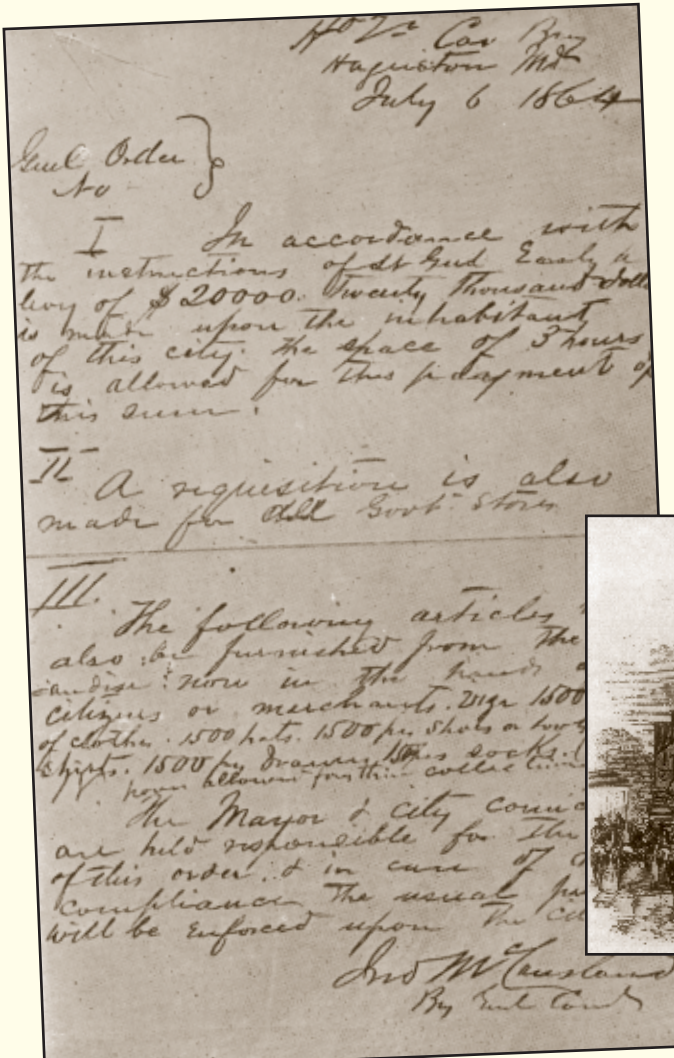 Hd Qrs Cav Brig
Hagerstown Md
July 6 1864
Genl Order
No
I In accordance with
the instructions of Lt Genl Early a
levy of $20000. Twenty thousand dolla
is made upon the inhabitant
of this city. The space of 3 hours
is allowed for the payment of
this sum.
II
A requisition is also
made for all Govt Stores
III.
The following articles
also be furnished from the
andise now in the hands
citizens or merchants. Viz 1500
of clothes. 1500 hats. 1500 prs Shoes or boots
shirts. 1500 prs Drawers. 1500 prs socks.
hours allowed for their collection
The Mayor & city counc
are held responsible for the
of this order, & in case of
compliance the usual
will be enforced upon the ci
Jno McCausland
Brig Genl Comdg